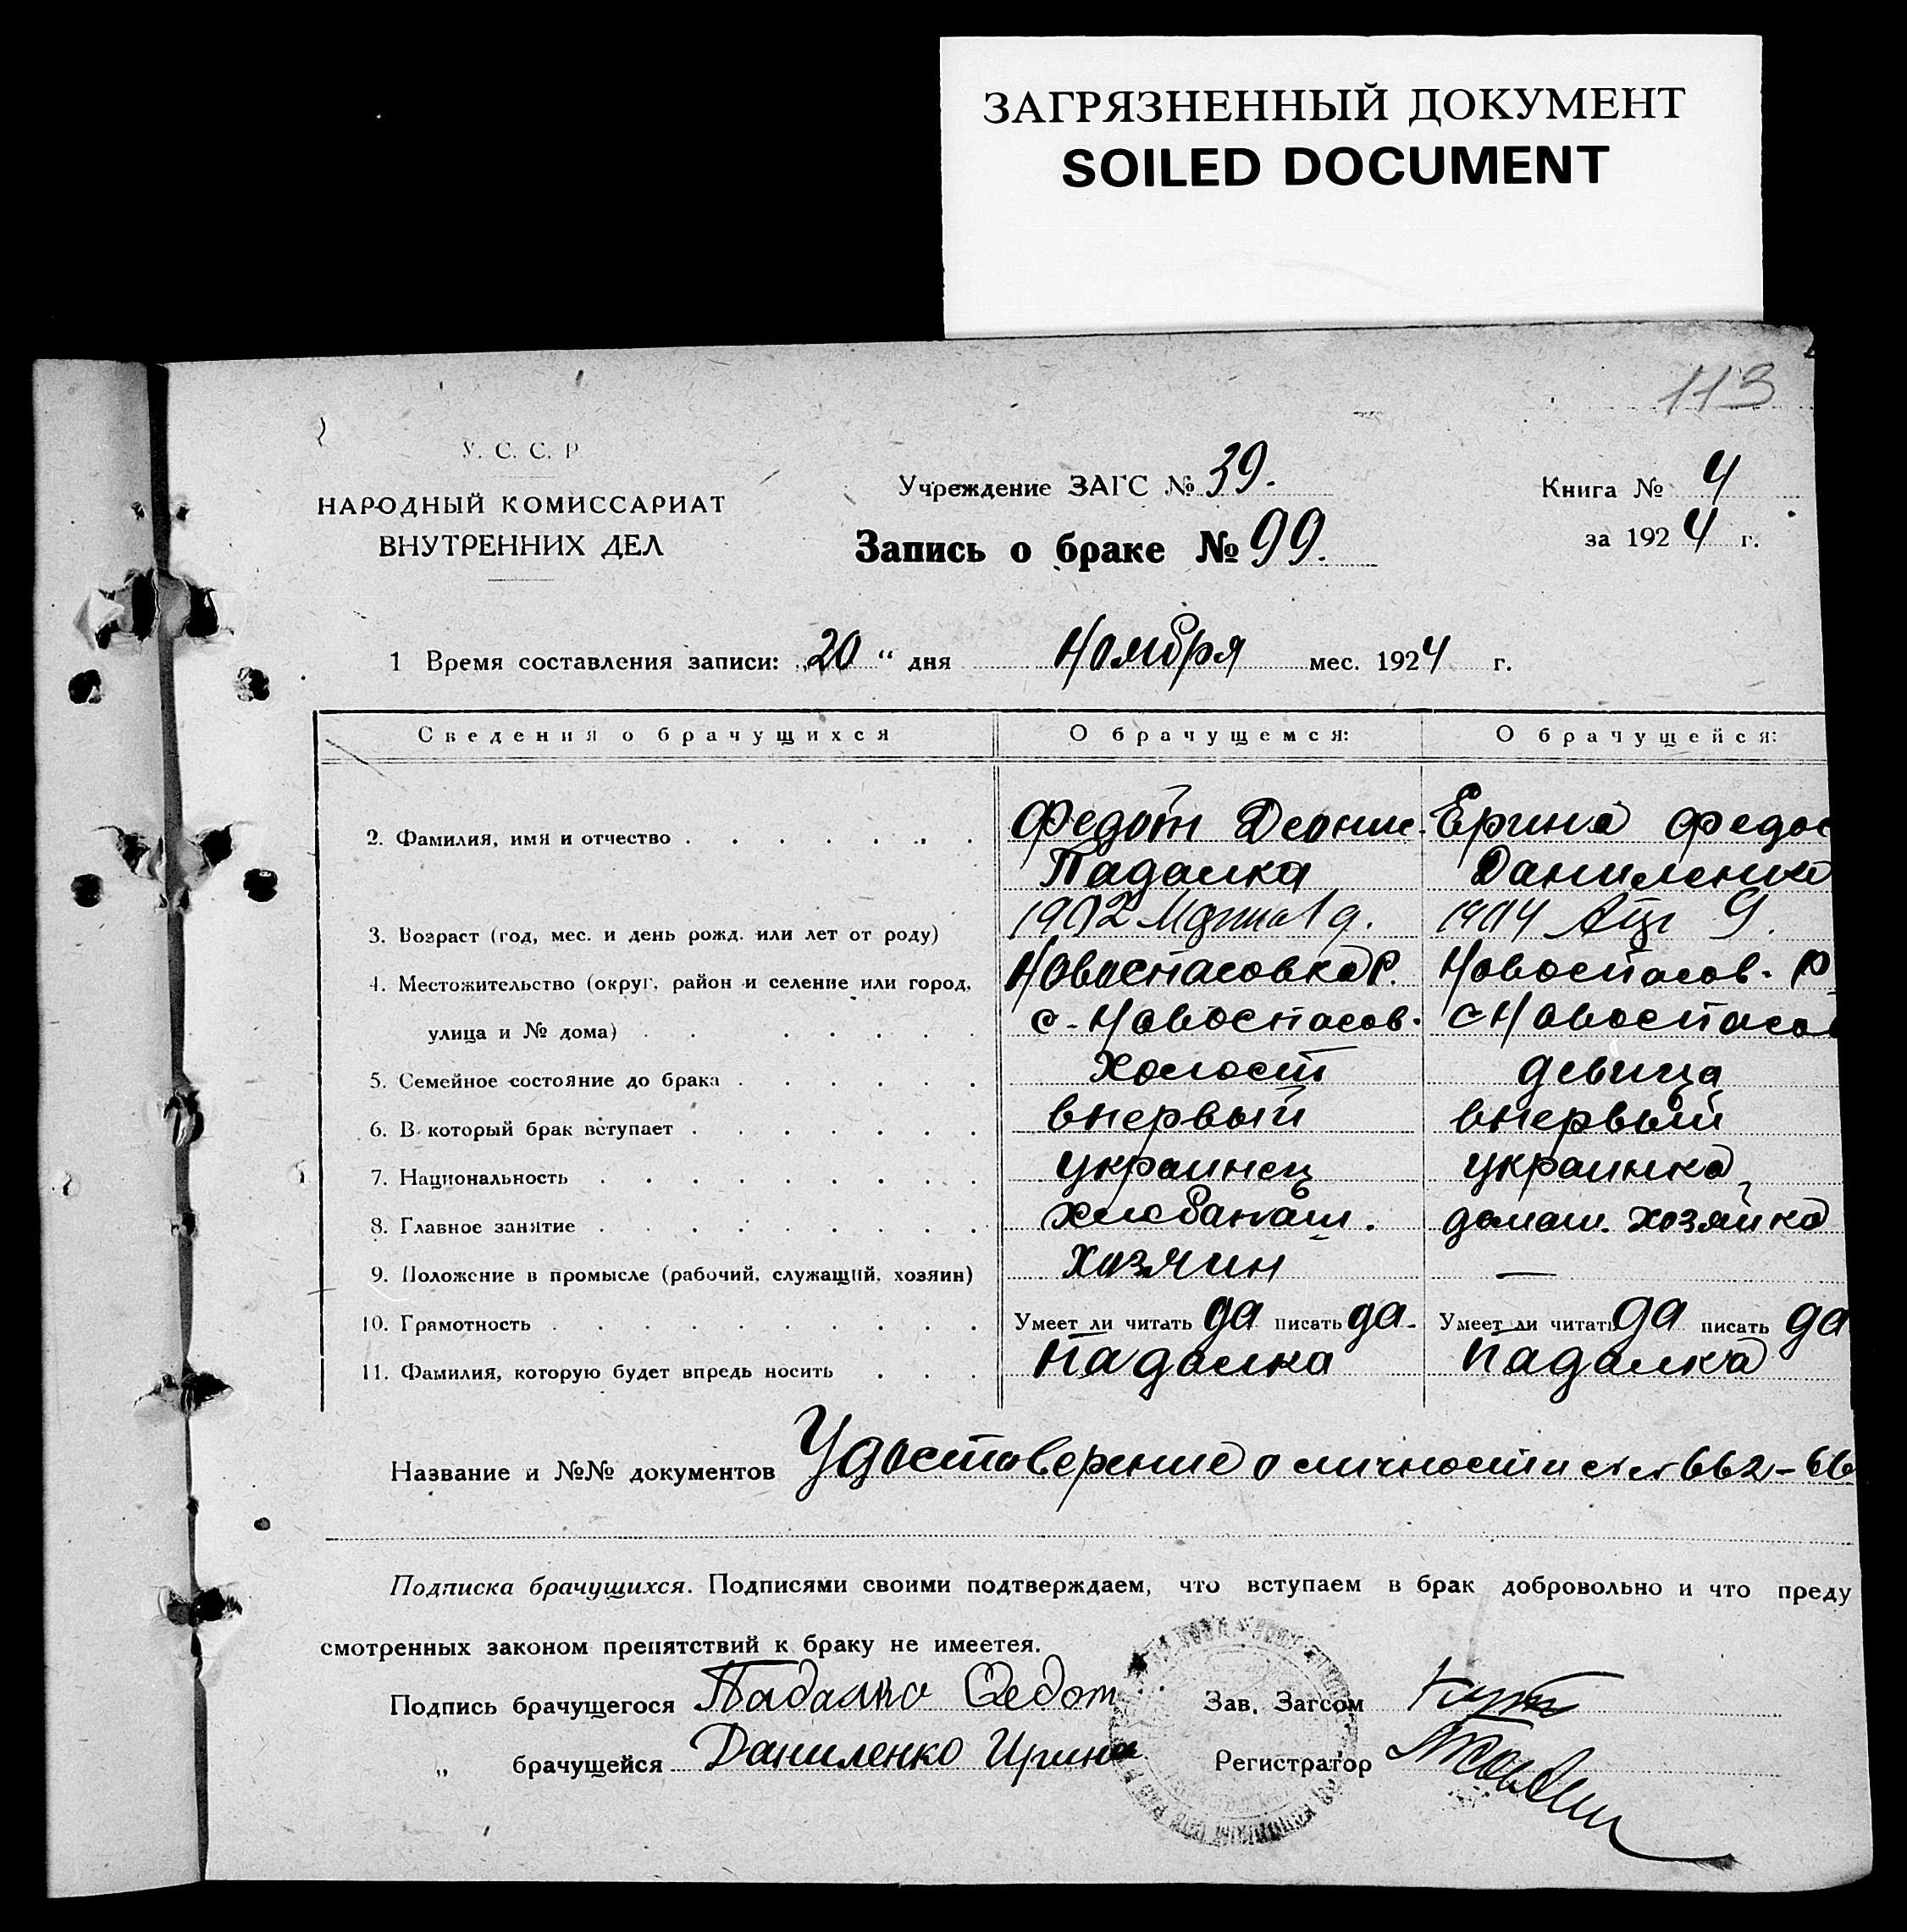 ЗАГРЯЗНЕННЫЙ ДОКУМЕНТ
SOILED DOCUMENT
113
У. С. С. Р
НАРОДНЫЙ КОМИССАРИАТ
ВНУТРЕННИХ ДЕЛ
Учреждение ЗАГС № 39.
Запись о браке № 99.
Книга № 4
за 1924 г.
1 Время составления записи: „20“ дня Ноября мес. 1924 г.
Сведения о брачущихся О брачущемся: О брачущейся:
2. Фамилия, имя и отчество Федот Деоние. Ерина Федос
Падалка Даниленко
3. Возраст (год, мес. и день рожд. или лет от роду) 1902 1904 9.
4. Местожительство (округ, район и селение или город, Новоспасовка Р. Новоспасов. Р
улица и № дома) с. Новоспасов. с Новоспасов
5. Семейное состояние до брака холост девица
6. В который брак вступает впервый впервый
7. Национальность украинец украинка
8. Главное занятие хлебапаш. домаш. хозяйка
9. Положение в промысле (рабочий, служащий, хозяин) хозяин —
10. Грамотность Умеет ли читать да писать да. Умеет ли читать да писать да
11. Фамилия, которую будет впредь носить Падалка Падалка
Название и №№ документов Удостоверение о личности 662-66
Подписка брачущихся. Подписями своими подтверждаем, что вступаем в брак добровольно и что преду
смотренных законом препятствий к браку не имеетея.
Подпись брачущегося Падалка Федот Зав. Загсом
„ брачущейся Даниленко Ирина Регистратор